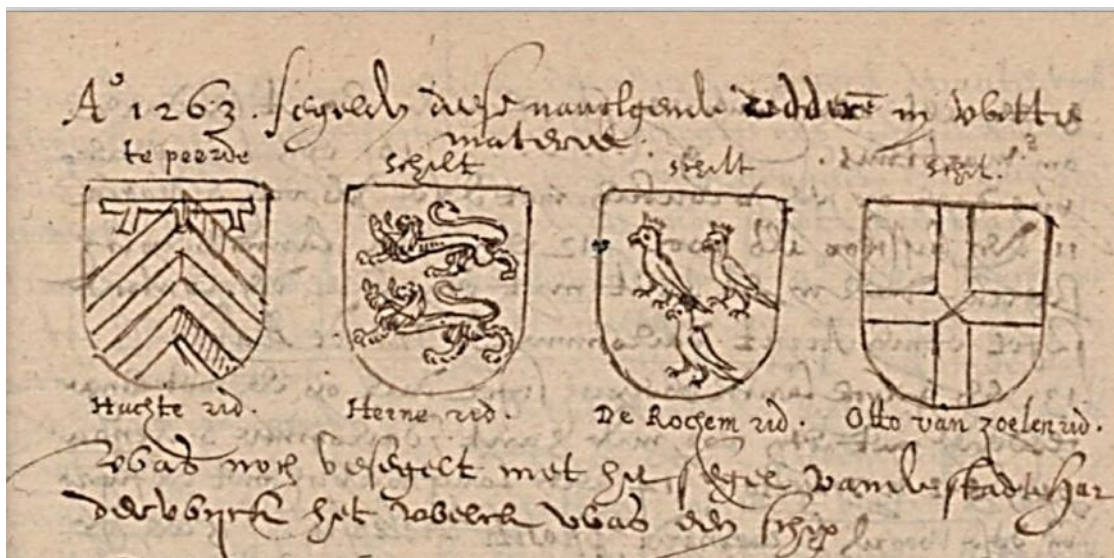 A° 1263. segelden diese naevolgende ridderen in witte
materie.
te peerde schilt schilt schilt.
Hachte rid. Herne rid. De Rochem rid. Otto van zoelen rid.
was noch besegelt met het segel vande stadt Har
derwyck het welck was een schip